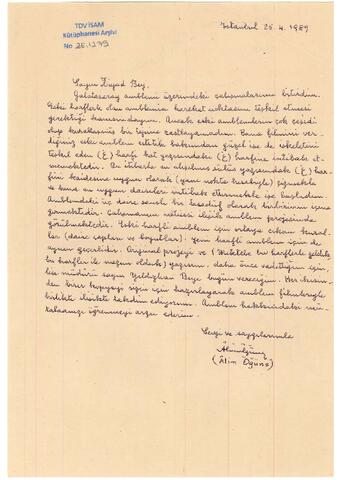 TDV İSAM
Kütüphanesi Arşivi
No 2E.1279
İstanbul 25.4.1989
Sayın Ziyad Bey,
Galatasaray amblemi üzerindeki çalışmalarımı bitirdim.
Eski harflerle olan amblemin hareket noktasını teşkil etmesi
gerektiği kanısındayım. Ancak eski amblemlerin çok çeşidi
olup kurallaşmış bir tipine rastlayamadım. Bana filmini ver-
diğiniz eski amblem estetik bakımdan güzel ise de iskeletini
teşkil eden (غ) harfi hat yazısındaki (غ) harfine intibak et-
memektedir. Bu itibarla en alışılmış sülüs yazısındaki (غ) har-
fini kaidesine uygun olarak (yani nokta hesabıyla) çizmekle
ve buna en uygun daireleri intibak ettirmekle işe başladım.
Amblemdeki üç daire sanki bir tesadüf olarak birbirinin içine
girmektedir. Çalışmamın neticesi ilişik amblem projesinde
görülmektedir. Eski harfli amblem için ortaya çıkan kural-
lar (daire çapları ve boyutlar) yeni harfli amblem için de
aynen geçerlidir. Orijinal projeyi ve
bu harfler ile yazısını daha önce vadettiğim için,
lise müdürü sayın Yeldighan Beye bugün vereceğim. Her kısım-
dan birer kopyeyi sizin için hazırlayarak amblem filmleriyle
birlikte ilişikte takdim ediyorum. Amblem hakkındaki mü-
talaanızı öğrenmeyi arzu ederim.
Sevgi ve saygılarımla
(Âlim Oğünç)